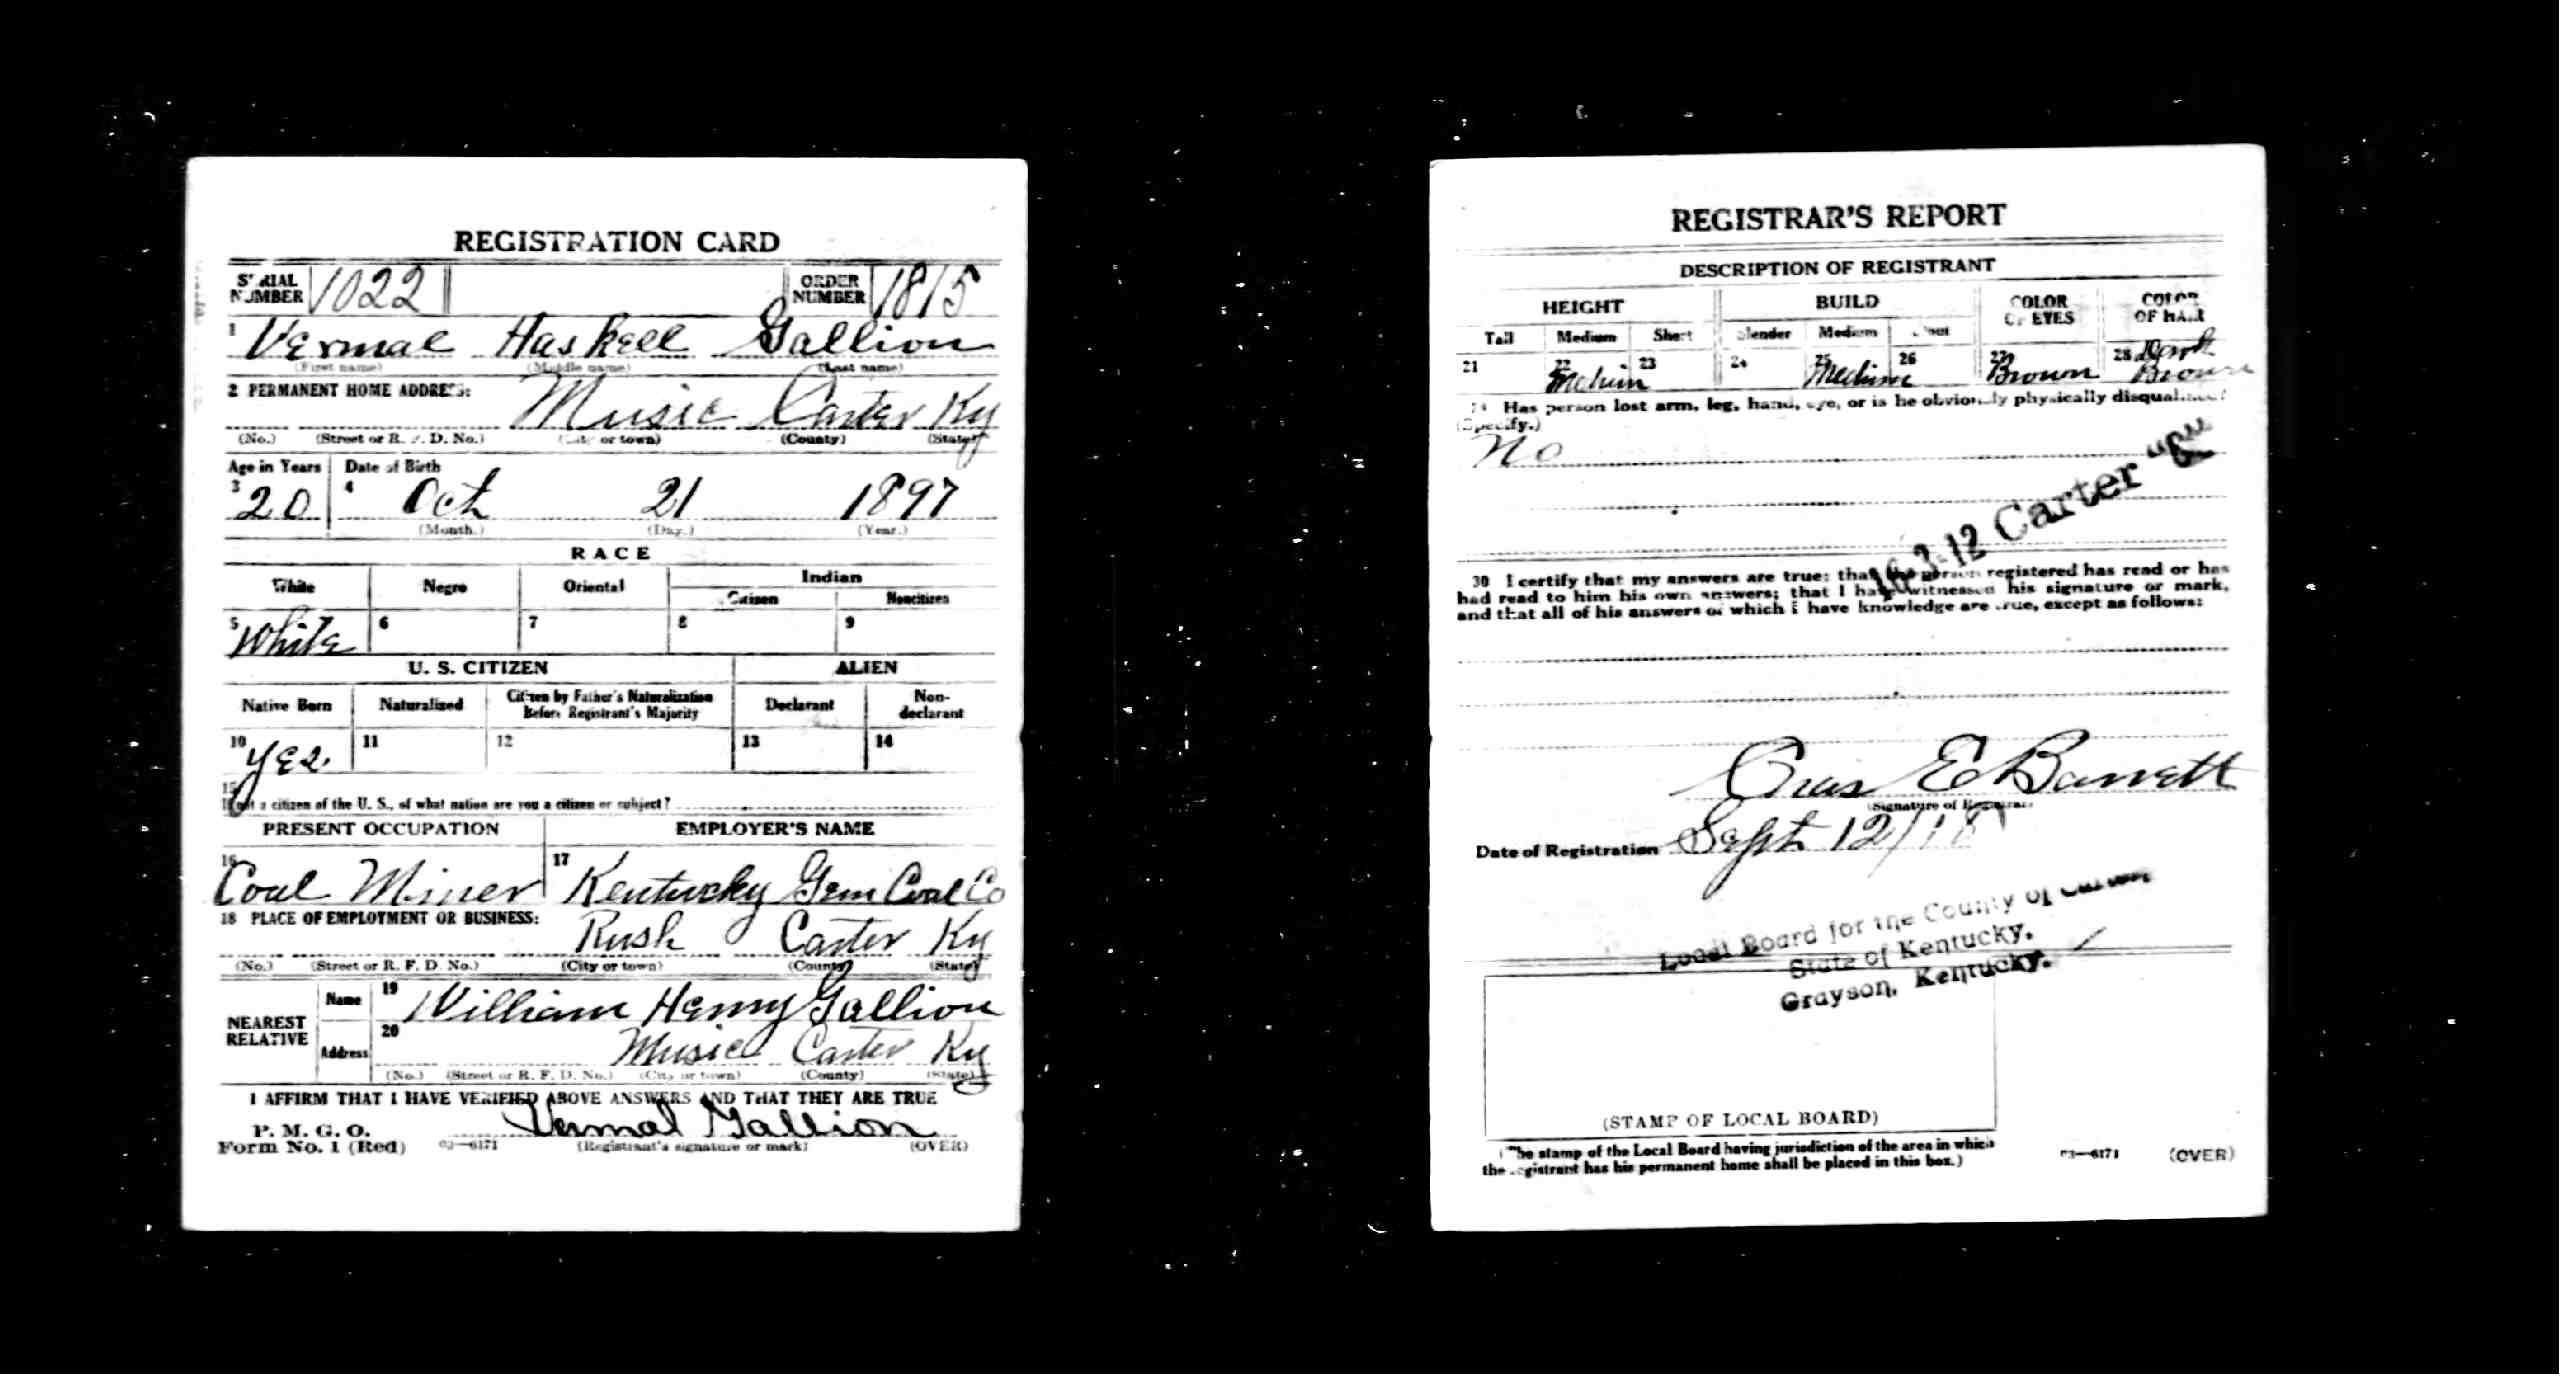 REGISTRATION CARD
SERIAL NUMBER 1022 ORDER NUMBER 1815
1 Vermal Haskell Gallion
(First name) (Middle name) (Last name)
2 PERMANENT HOME ADDRESS:
Music Carter Ky
(No.) (Street or R. F. D. No.) (City or town) (County) (State)
Age in Years Date of Birth
3 20 4 Oct 21 1897
(Month.) (Day.) (Year.)
RACE
White Negro Oriental Indian
Citizen Noncitizen
5 White 6 7 8 9
U. S. CITIZEN ALIEN
Native Born Naturalized Citizen by Father's Naturalization Before Registrant's Majority Declarant Non-declarant
10 Yes. 11 12 13 14
15
If not a citizen of the U. S., of what nation are you a citizen or subject?
PRESENT OCCUPATION EMPLOYER'S NAME
16 Coal Miner 17 Kentucky Gem Coal Co
18 PLACE OF EMPLOYMENT OR BUSINESS:
Rush Carter Ky
(No.) (Street or R. F. D. No.) (City or town) (County) (State)
NEAREST RELATIVE Name 19 William Henry Gallion
Address 20 Music Carter Ky
(No.) (Street or R. F. D. No.) (City or town) (County) (State)
I AFFIRM THAT I HAVE VERIFIED ABOVE ANSWERS AND THAT THEY ARE TRUE
P. M. G. O.
Form No. 1 (Red) 03—6171 Vermal Gallion
(Registrant's signature or mark) (OVER)
REGISTRAR'S REPORT
DESCRIPTION OF REGISTRANT
HEIGHT BUILD COLOR OF EYES COLOR OF HAIR
Tall Medium Short Slender Medium Stout
21 22 23 24 25 Medium 26 27 Brown 28 Dark Brown
29 Has person lost arm, leg, hand, eye, or is he obviously physically disqualified?
(Specify.)
No
16-3-12 Carter "C"
30 I certify that my answers are true; that the person registered has read or has
had read to him his own answers; that I have witnessed his signature or mark,
and that all of his answers of which I have knowledge are true, except as follows:
Chas E Barrett
(Signature of Registrar)
Date of Registration Sept 12/18
Local Board for the County of Carter,
State of Kentucky.
Grayson, Kentucky.
(STAMP OF LOCAL BOARD)
(The stamp of the Local Board having jurisdiction of the area in which
the registrant has his permanent home shall be placed in this box.)
03—6171 (OVER)